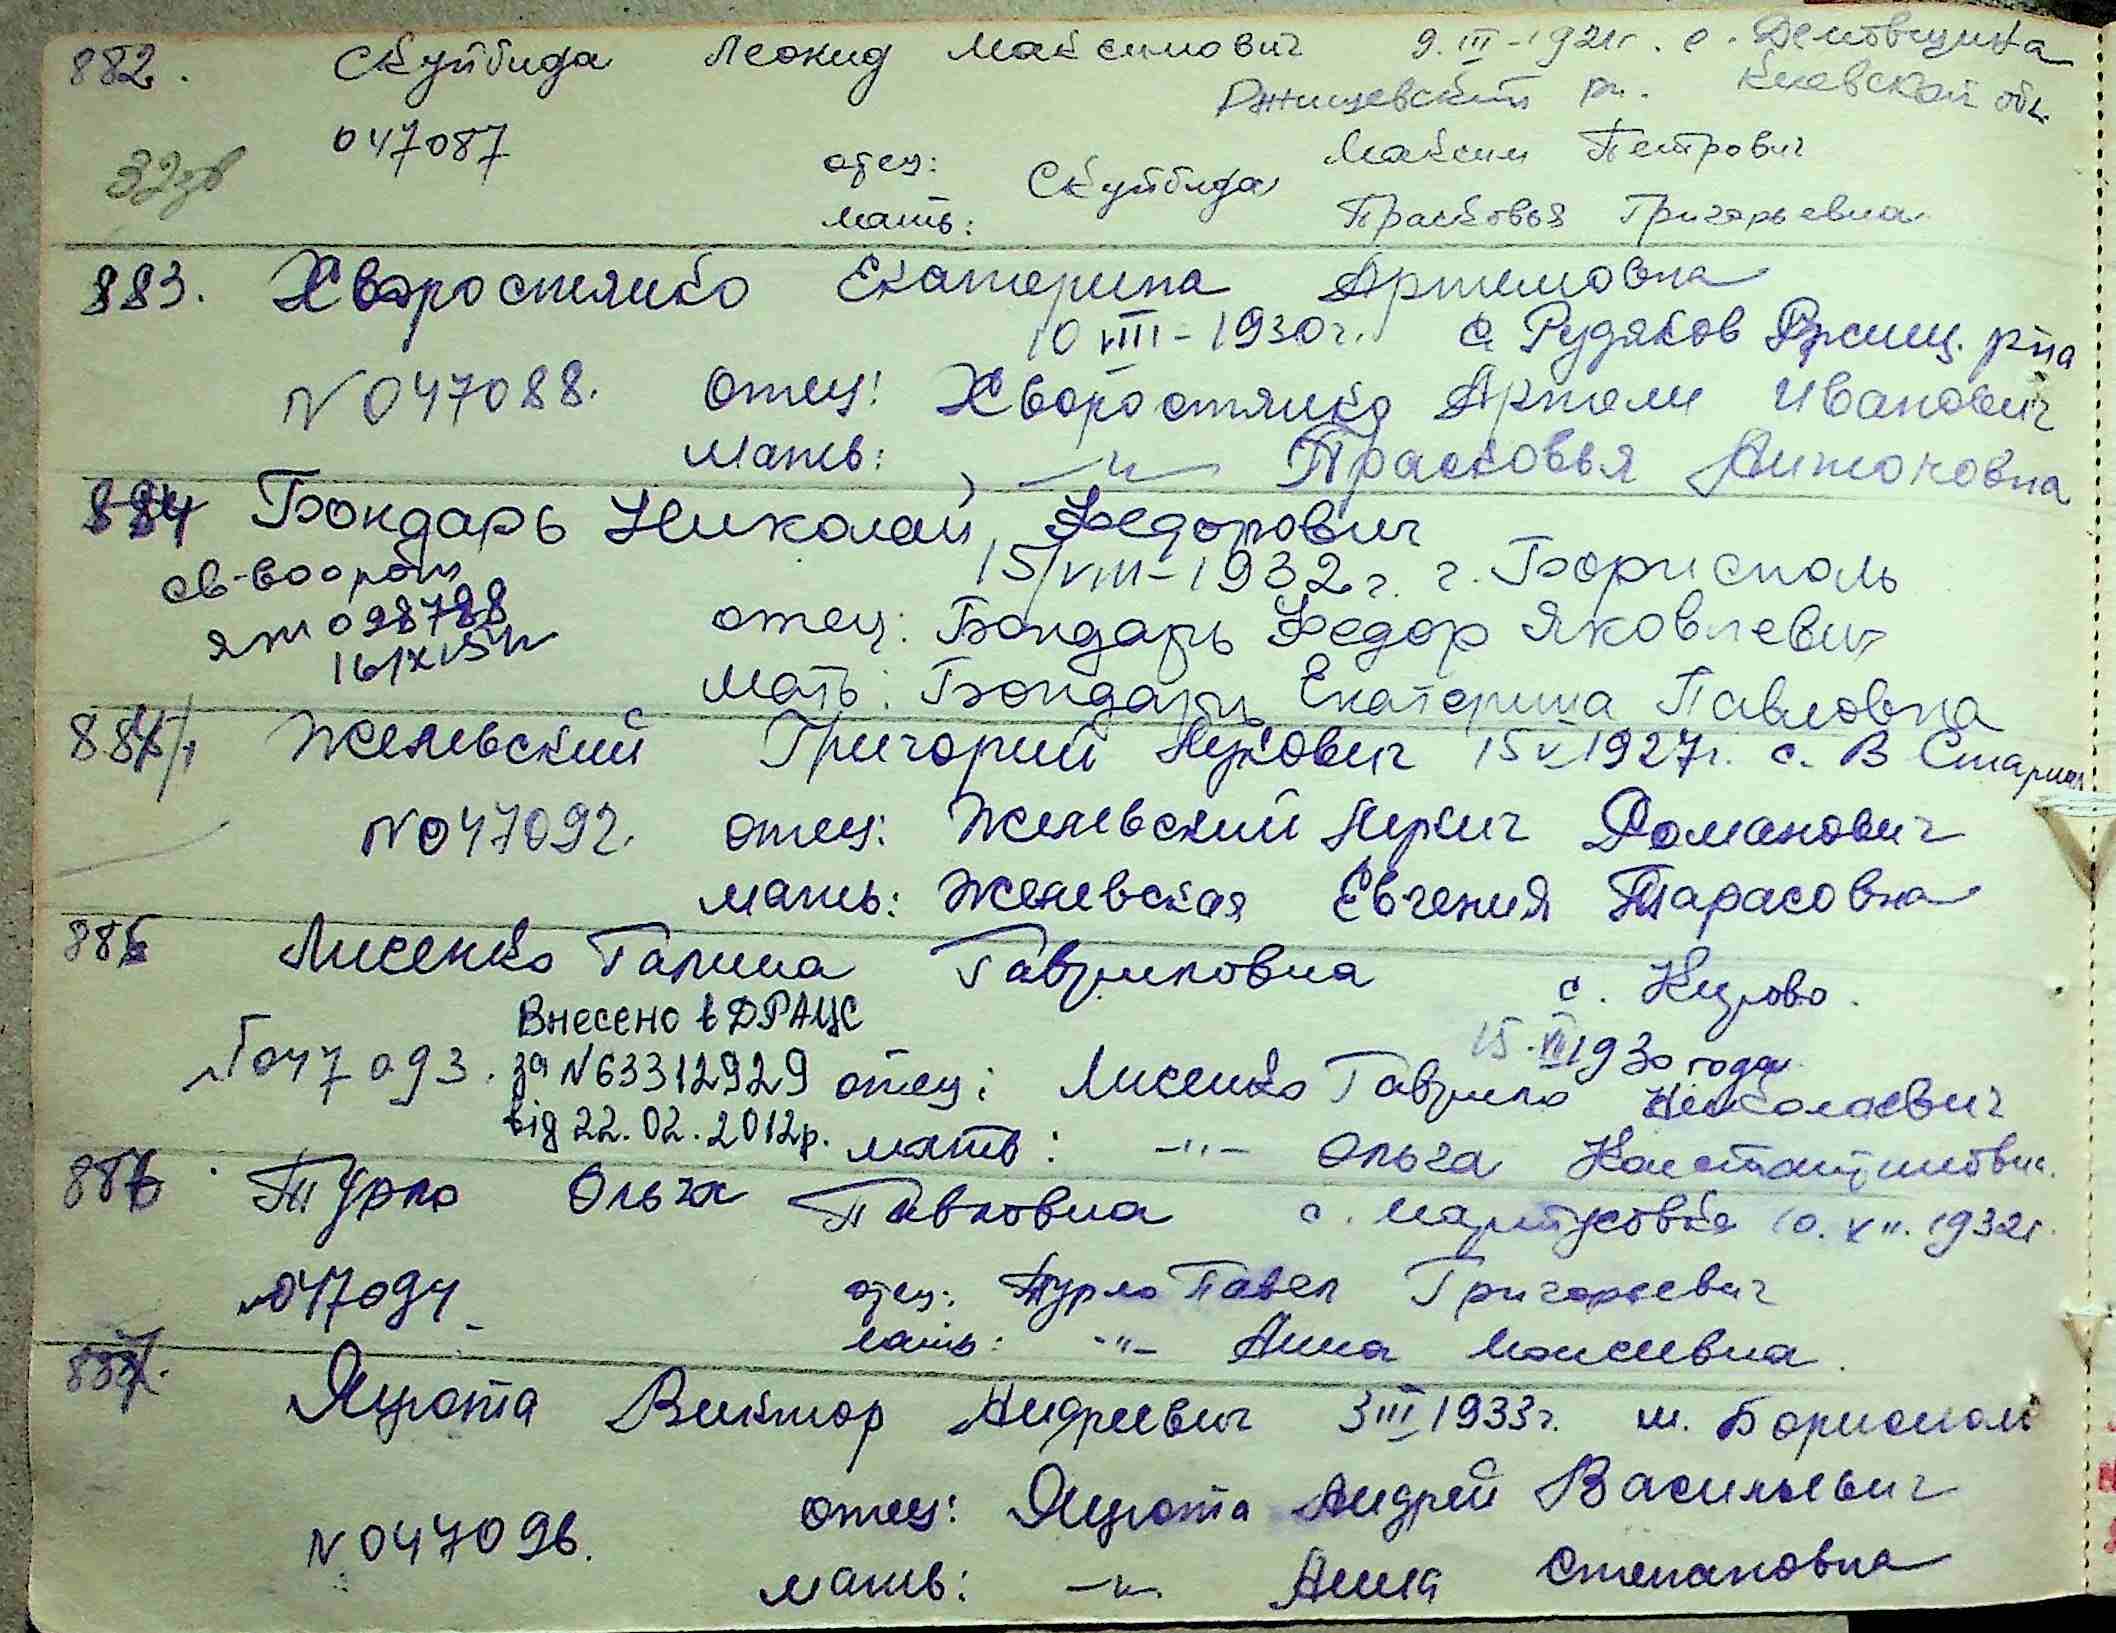 882. Скуйбида Леонид Максимович 9.III-1921г. с. Демовщина
Ржищевский рн. Киевской обл.
047087
отец: Скуйбида Максим Петрович
мать: Прасковья Григорьевна
883. Хворостянко Екатерина Артемовна
10 VIII-1930г. с. Рудяков Ржищ. рна
N 047088. отец: Хворостянко Артем Иванович
мать: -"- Прасковья Антоновна
884 Бондарь Николай Федорович
св-во
15/VIII-1932г. г. Борисполь
098788
отец: Бондарь Федор Яковлевич
мать: Бондарь Екатерина Павловна
Женевский Григорий 15 V 1927г. с. В Старица
N 047092. отец: Женевский Романович
мать: Женевская Евгения Тарасовна
885 Лисенко Галина Гавриловна с. Кирово.
Внесено в ДРАЦС
15. 1930 года
N 047093. за N63312929 отец: Лисенко Гаврило Николаевич
від 22.02.2012р. мать: -"- Ольга Константиновна
886 Турло Ольга Павловна с. Мартусовка 10.XII.1932г.
N 047094 отец: Турло Павел Григорьевич
мать: -"- Анна Моисеевна.
887. Яцюта Виктор Андреевич 3 III 1933г. м. Борисполь
отец: Яцюта Андрей Васильевич
N 047096.
мать: -"- Анна Степановна